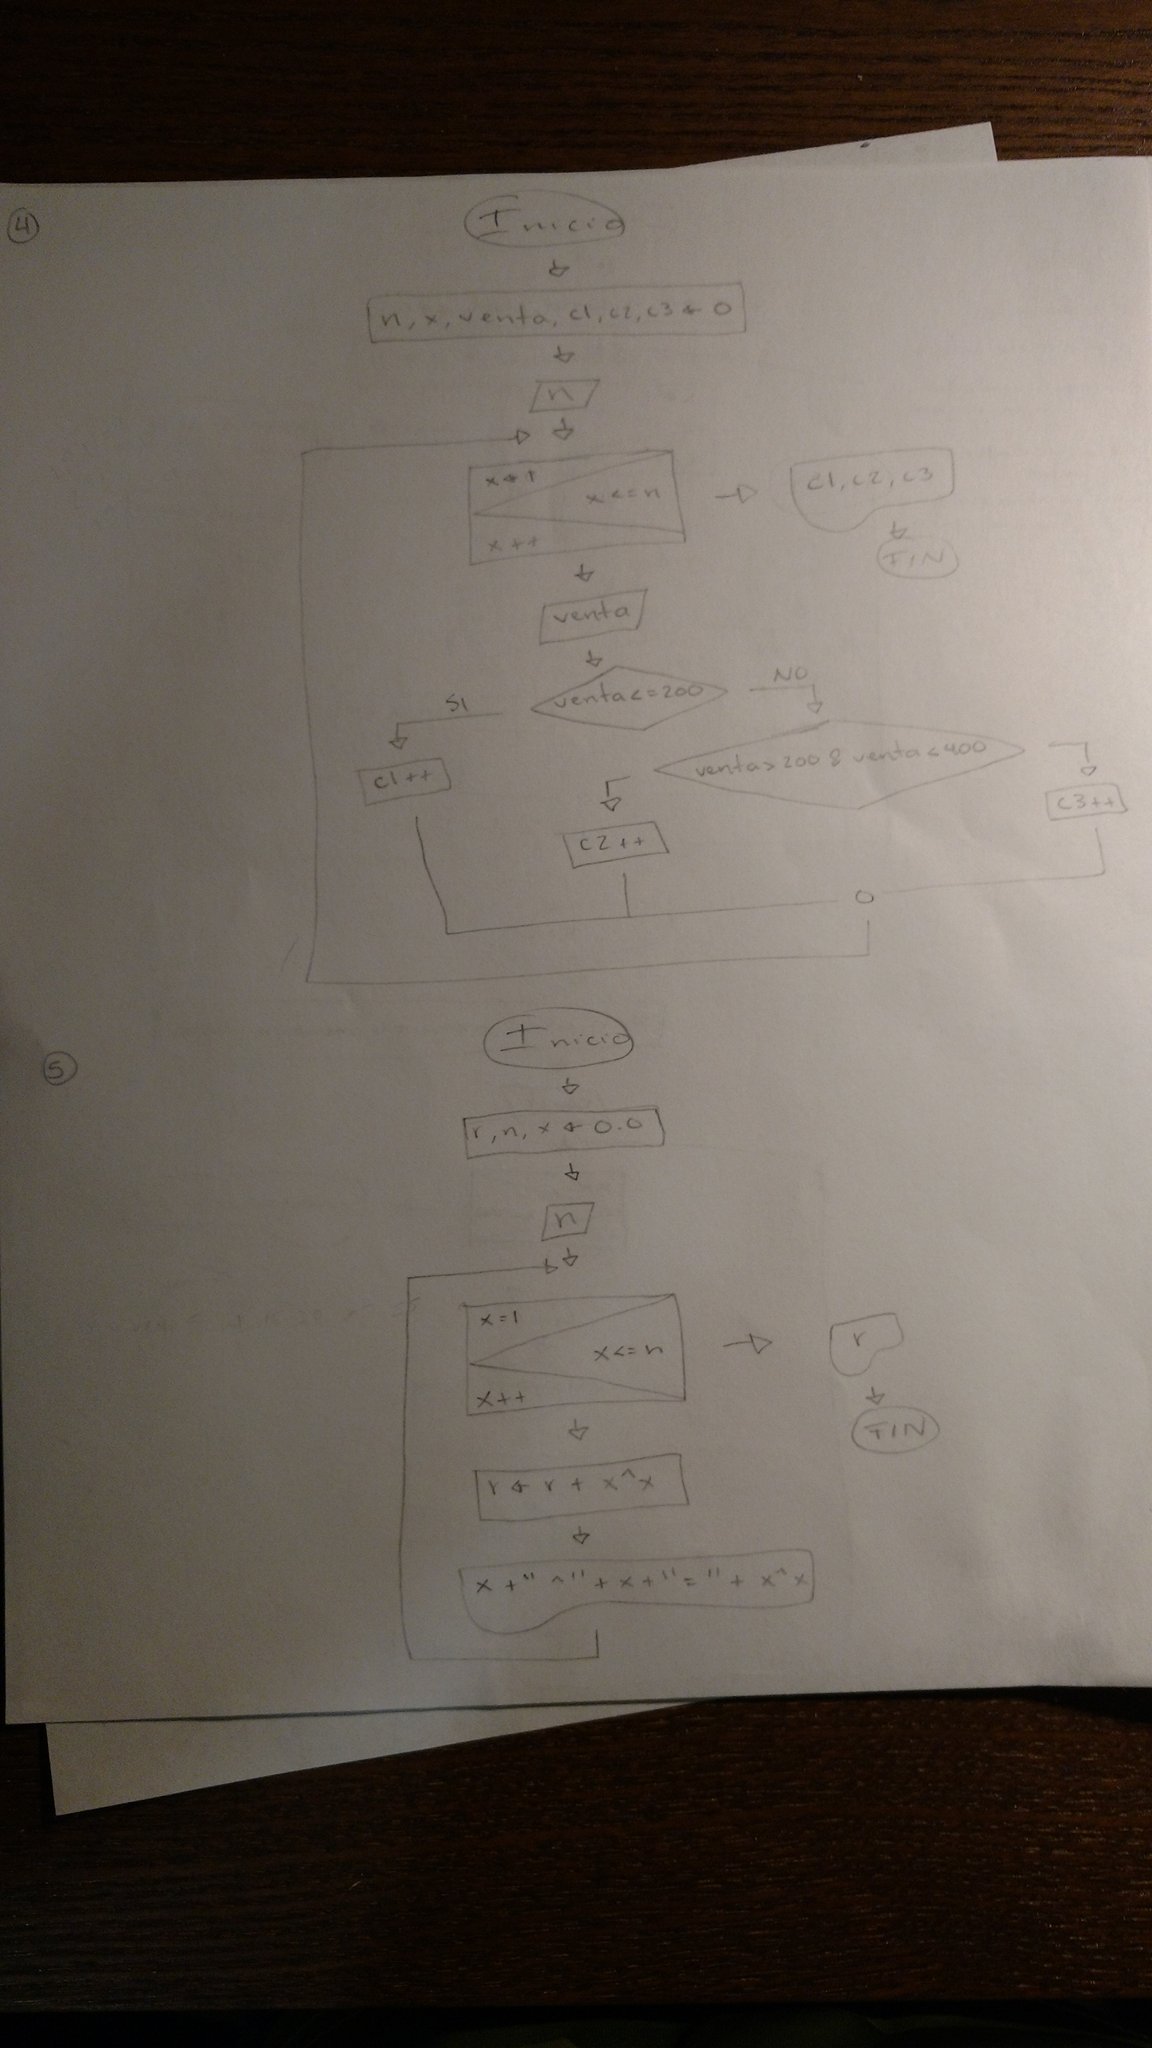 4
Inicio
n, x, venta, c1, c2, c3 ← 0
n
x ← 1
x <= n
x ++
c1, c2, c3
FIN
venta
venta <= 200
SI
NO
venta > 200 & venta < 400
c1 ++
c2 ++
c3 ++
5
Inicio
r, n, x ← 0.0
n
x = 1
x <= n
x ++
r
FIN
r ← r + x^x
x + " ^ " + x + " = " + x^x